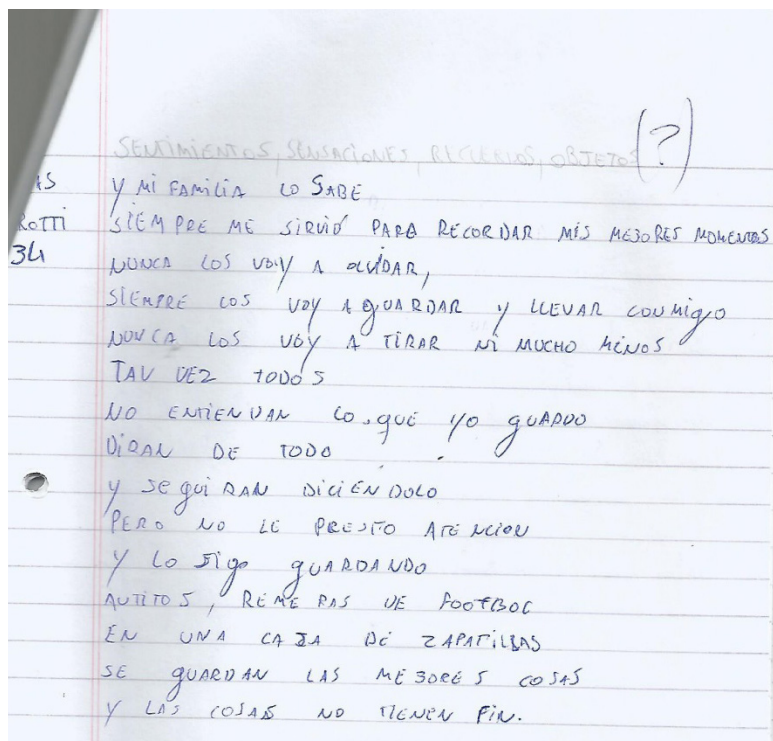 SENTIMIENTOS, SENSACIONES, RECUERDOS, OBJETOS (?)
AS
Y MI FAMILIA LO SABE
ROTTI
SIEMPRE ME SIRVIÓ PARA RECORDAR MIS MEJORES MOMENTOS
34
NUNCA LOS VOY A OLVIDAR,
SIEMPRE LOS VOY A GUARDAR Y LLEVAR CONMIGO
NUNCA LOS VOY A TIRAR NI MUCHO MENOS
TAV VEZ TODOS
NO ENTIENDAN LO QUE YO GUARDO
DIRAN DE TODO
Y SEGUIRAN DICIENDOLO
PERO NO LE PRESTO ATENCION
Y LO SIGO GUARDANDO
AUTITOS, REMERAS DE FOOTBOL
EN UNA CAJA DE ZAPATILLAS
SE GUARDAN LAS MEJORES COSAS
Y LAS COSAS NO TIENEN FIN.